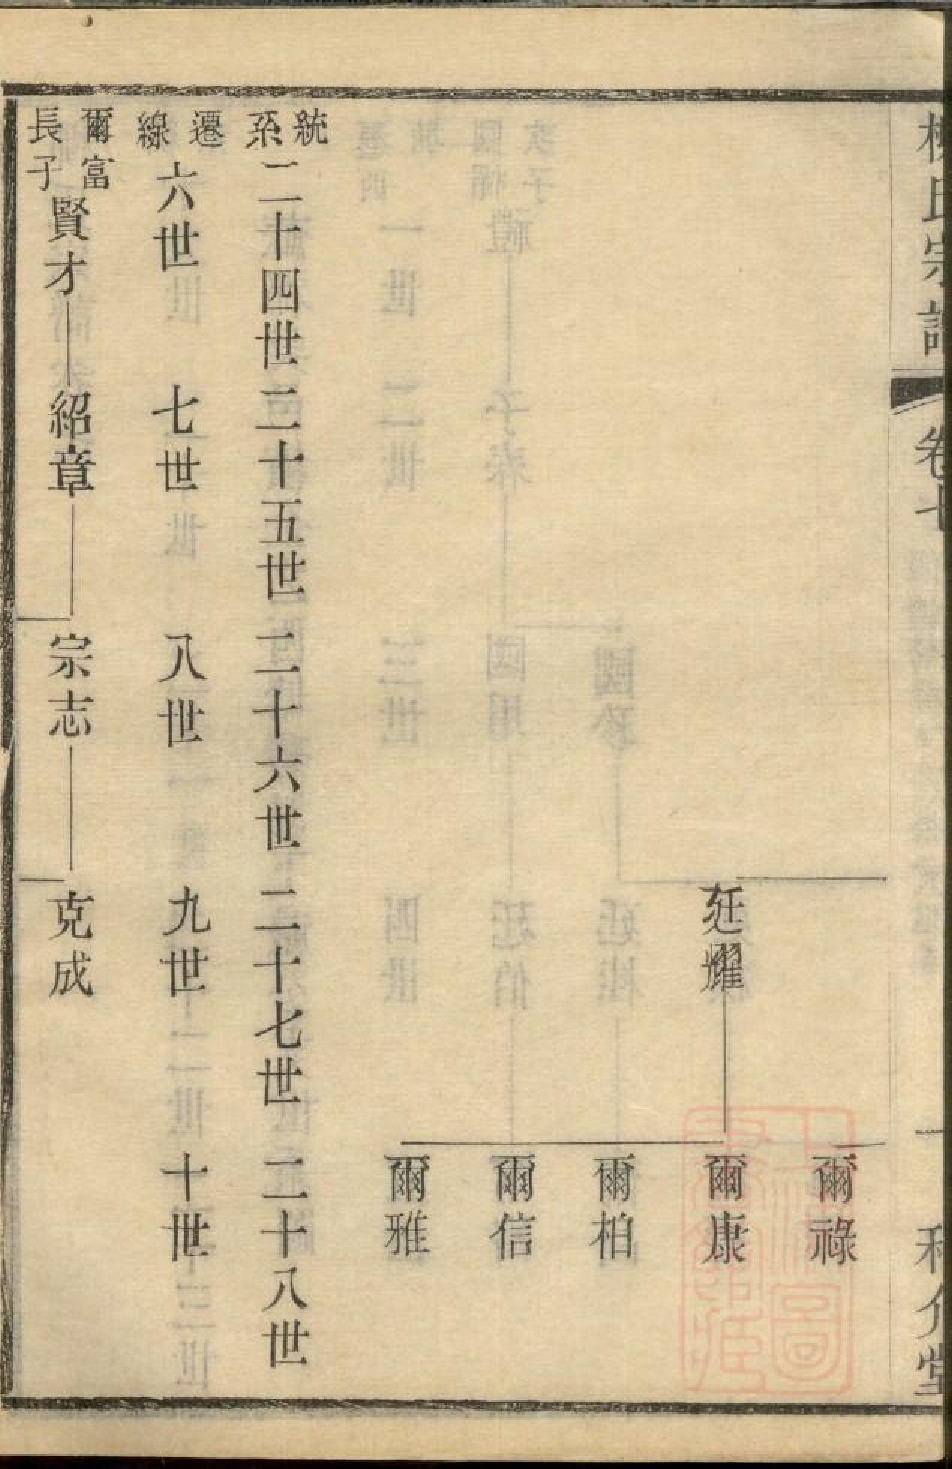 氏宗譜
卷七
一
爾祿
廷耀
爾康
爾柏
爾信
爾雅
統系 二十四世 二十五世 二十六世 二十七世 二十八世
遷線 六世 七世 八世 九世 十世
爾富長子 賢才 紹章 宗志 克成